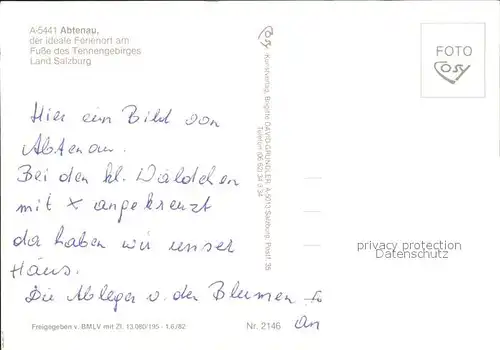 A-5441 Abtenau,
der ideale Ferienort am
Fuße des Tennengebirges
Land Salzburg
Cosy
FOTO
Cosy
Hier ein Bild von
Abtenau.
Bei den kl. Wäldchen
mit x angekreuzt
da haben wir unser
Haus.
Die Ableger v. den Blumen
an
Kunstverlag, Brigitte DAVID-GRÜNDLER, A-5013 Salzburg, Postf. 35
privacy protection
Datenschutz
Freigegeben v. BMLV mit Zl. 13.080/195 - 1.6/82
Nr. 2146